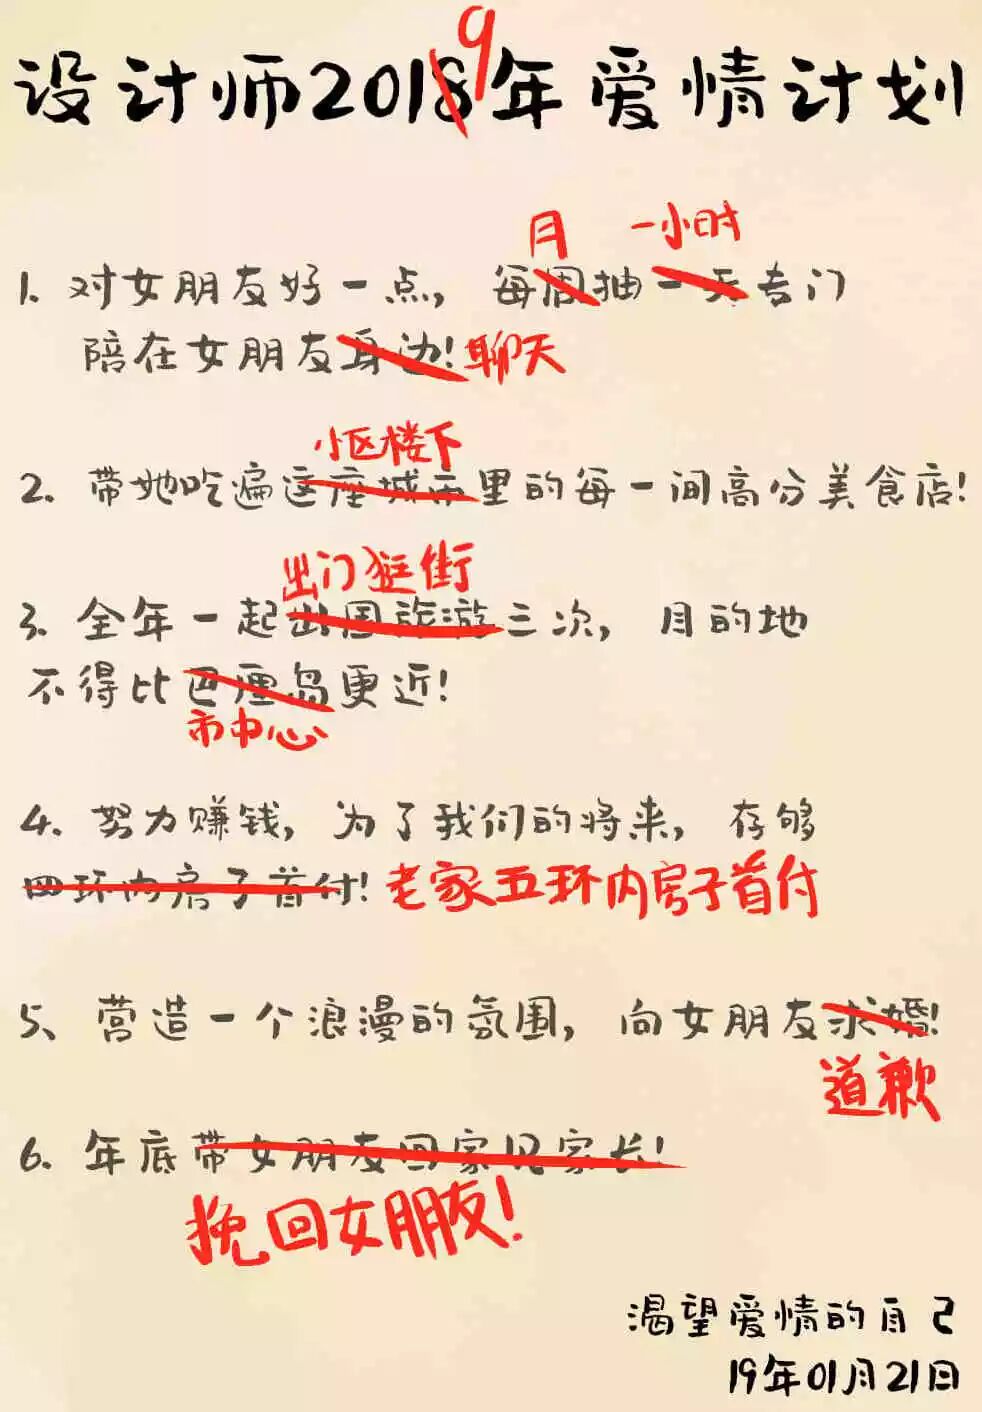 设计师20189年爱情计划
月 一小时
1. 对女朋友好一点，每周抽一天专门
陪在女朋友身边！聊天
小区楼下
2. 带她吃遍这座城市里的每一间高分美食店！
出门逛街
3. 全年一起出国旅游三次，目的地
不得比巴厘岛更近！
市中心
4. 努力赚钱，为了我们的将来，存够
四环内房子首付！老家五环内房子首付
5、营造一个浪漫的氛围，向女朋友求婚！
道歉
6. 年底带女朋友回家见家长！
挽回女朋友！
渴望爱情的自己
19年01月21日